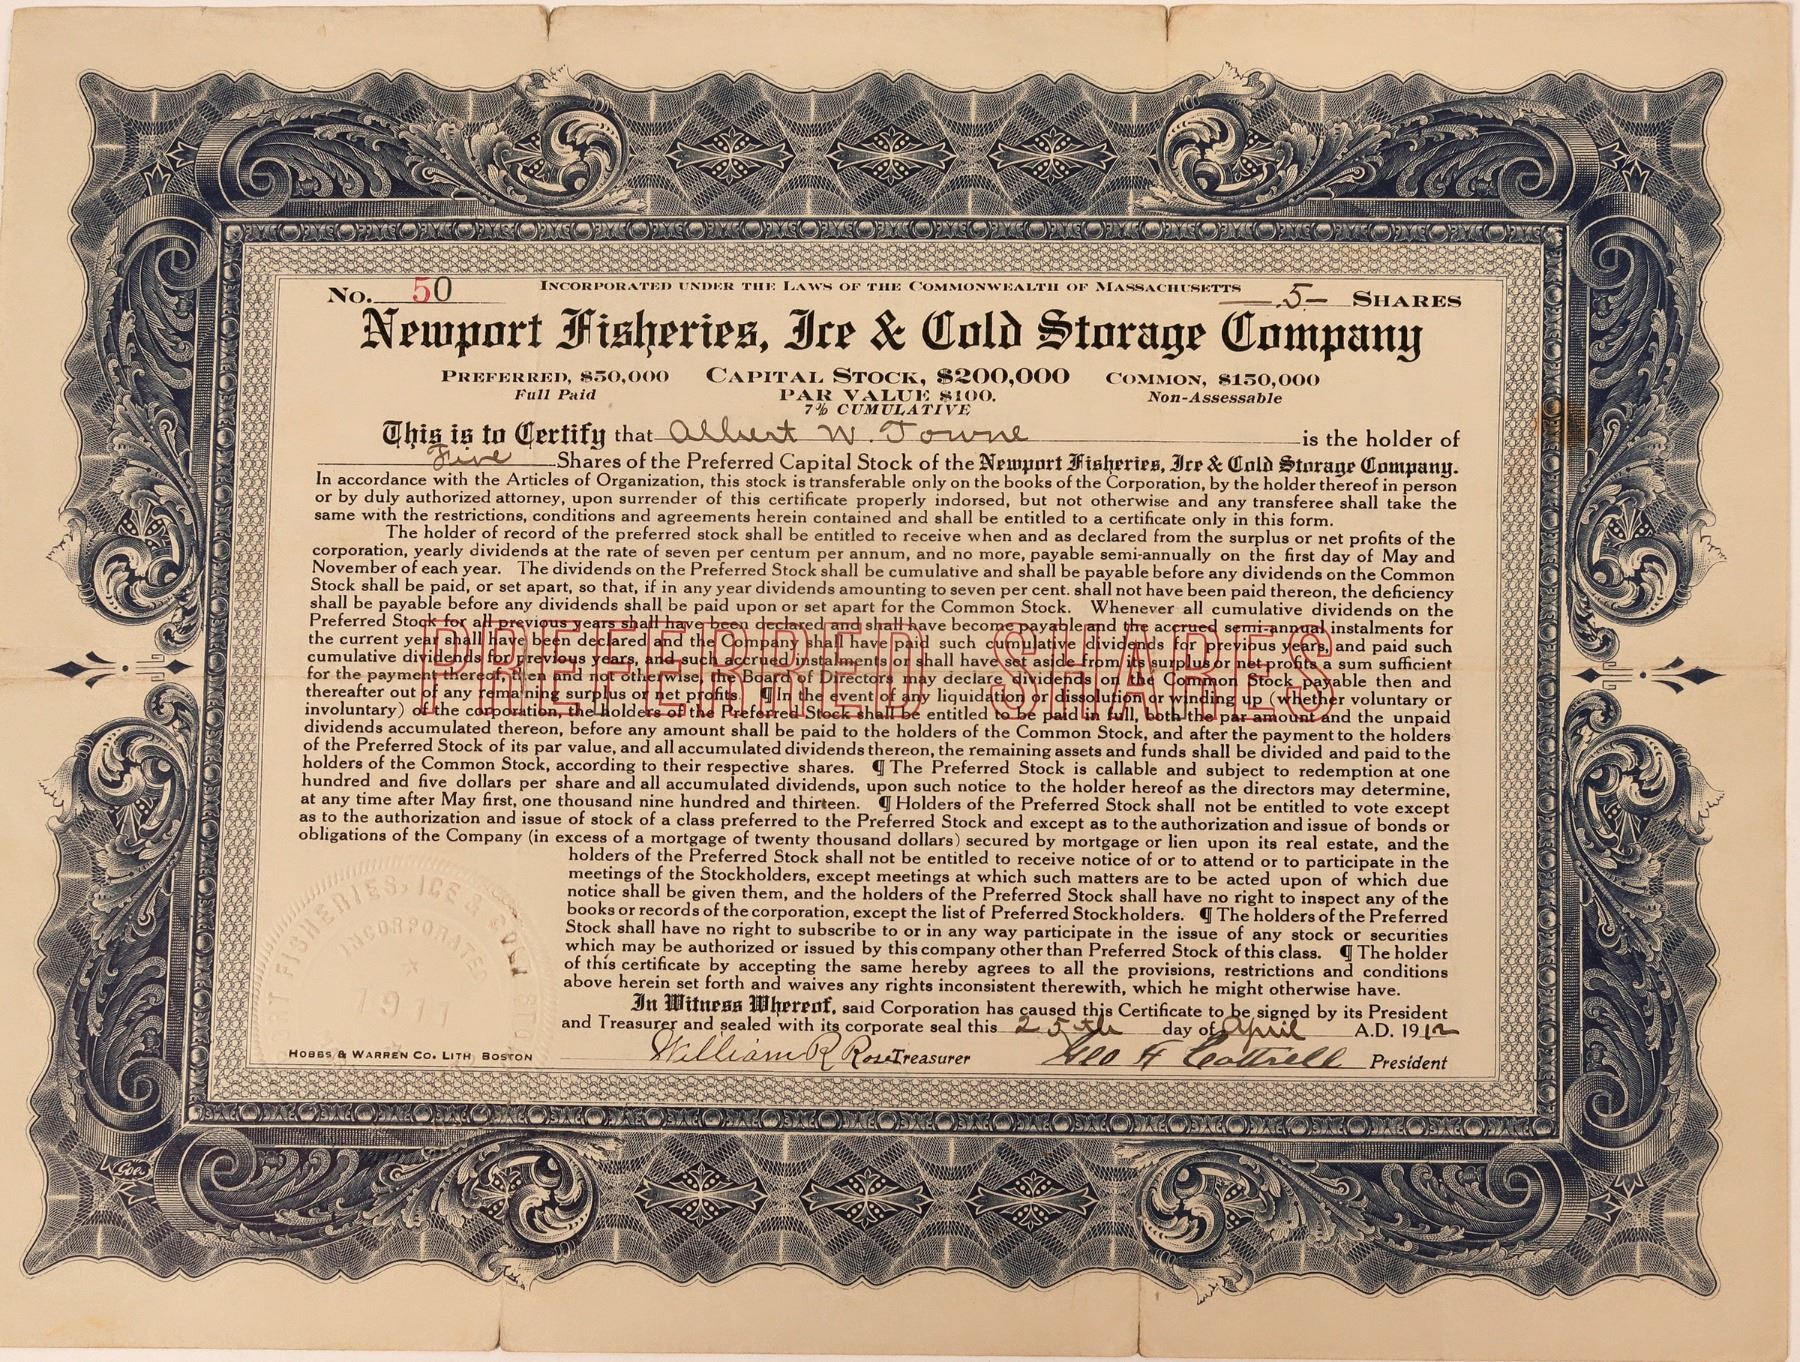 No. 50
INCORPORATED UNDER THE LAWS OF THE COMMONWEALTH OF MASSACHUSETTS
5 SHARES
Newport Fisheries, Ice & Cold Storage Company
PREFERRED, $50,000 CAPITAL STOCK, $200,000 COMMON, $150,000
Full Paid PAR VALUE $100. Non-Assessable
7% CUMULATIVE
This is to Certify that Albert W. Towne is the holder of
Five Shares of the Preferred Capital Stock of the Newport Fisheries, Ice & Cold Storage Company.
In accordance with the Articles of Organization, this stock is transferable only on the books of the Corporation, by the holder thereof in person
or by duly authorized attorney, upon surrender of this certificate properly indorsed, but not otherwise and any transferee shall take the
same with the restrictions, conditions and agreements herein contained and shall be entitled to a certificate only in this form.
The holder of record of the preferred stock shall be entitled to receive when and as declared from the surplus or net profits of the
corporation, yearly dividends at the rate of seven per centum per annum, and no more, payable semi-annually on the first day of May and
November of each year. The dividends on the Preferred Stock shall be cumulative and shall be payable before any dividends on the Common
Stock shall be paid, or set apart, so that, if in any year dividends amounting to seven per cent. shall not have been paid thereon, the deficiency
shall be payable before any dividends shall be paid upon or set apart for the Common Stock. Whenever all cumulative dividends on the
Preferred Stock for all previous years shall have been declared and shall have become payable and the accrued semi-annual instalments for
the current year shall have been declared and the Company shall have paid such cumulative dividends for previous years, and paid such
cumulative dividends for previous years, and such accrued instalments or shall have set aside from its surplus or net profits a sum sufficient
for the payment thereof, then and not otherwise, the Board of Directors may declare dividends on the Common Stock payable then and
thereafter out of any remaining surplus or net profits. ¶ In the event of any liquidation or dissolution or winding up (whether voluntary or
involuntary) of the corporation, the holders of the Preferred Stock shall be entitled to be paid in full, both the par amount and the unpaid
dividends accumulated thereon, before any amount shall be paid to the holders of the Common Stock, and after the payment to the holders
of the Preferred Stock of its par value, and all accumulated dividends thereon, the remaining assets and funds shall be divided and paid to the
holders of the Common Stock, according to their respective shares. ¶ The Preferred Stock is callable and subject to redemption at one
hundred and five dollars per share and all accumulated dividends, upon such notice to the holder hereof as the directors may determine,
at any time after May first, one thousand nine hundred and thirteen. ¶ Holders of the Preferred Stock shall not be entitled to vote except
as to the authorization and issue of stock of a class preferred to the Preferred Stock and except as to the authorization and issue of bonds or
obligations of the Company (in excess of a mortgage of twenty thousand dollars) secured by mortgage or lien upon its real estate, and the
holders of the Preferred Stock shall not be entitled to receive notice of or to attend or to participate in the
meetings of the Stockholders, except meetings at which such matters are to be acted upon of which due
notice shall be given them, and the holders of the Preferred Stock shall have no right to inspect any of the
books or records of the corporation, except the list of Preferred Stockholders. ¶ The holders of the Preferred
Stock shall have no right to subscribe to or in any way participate in the issue of any stock or securities
which may be authorized or issued by this company other than Preferred Stock of this class. ¶ The holder
of this certificate by accepting the same hereby agrees to all the provisions, restrictions and conditions
above herein set forth and waives any rights inconsistent therewith, which he might otherwise have.
In Witness Whereof, said Corporation has caused this Certificate to be signed by its President
and Treasurer and sealed with its corporate seal this 25th day of April A.D. 1912
William R Rose Treasurer Geo H Cottrell President
HOBBS & WARREN CO. LITH BOSTON
PREFERRED SHARES
FISHERIES, ICE & COLD STO
INCORPORATED
1911
Goes